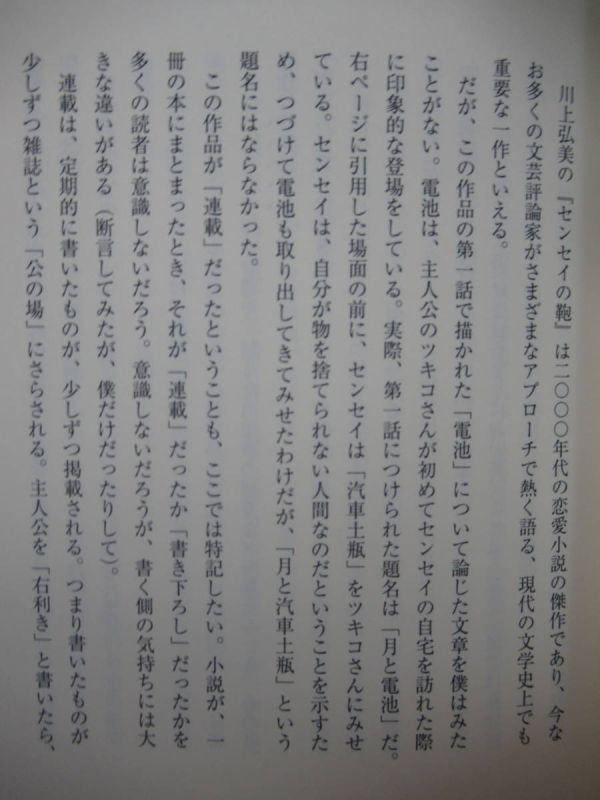 川上弘美の『センセイの鞄』は二〇〇〇年代の恋愛小説の傑作であり、今な
お多くの文芸評論家がさまざまなアプローチで熱く語る、現代の文学史上でも
重要な一作といえる。
だが、この作品の第一話で描かれた「電池」について論じた文章を僕はみた
ことがない。電池は、主人公のツキコさんが初めてセンセイの自宅を訪れた際
に印象的な登場をしている。実際、第一話につけられた題名は「月と電池」だ。
右ページに引用した場面の前に、センセイは「汽車土瓶」をツキコさんにみせ
ている。センセイは、自分が物を捨てられない人間なのだということを示すた
め、つづけて電池も取り出してきてみせたわけだが、「月と汽車土瓶」という
題名にはならなかった。
この作品が「連載」だったということも、ここでは特記したい。小説が、一
冊の本にまとまったとき、それが「連載」だったか「書き下ろし」だったかを
多くの読者は意識しないだろう。意識しないだろうが、書く側の気持ちには大
きな違いがある（断言してみたが、僕だけだったりして）。
連載は、定期的に書いたものが、少しずつ掲載される。つまり書いたものが
少しずつ雑誌という「公の場」にさらされる。主人公を「右利き」と書いたら、